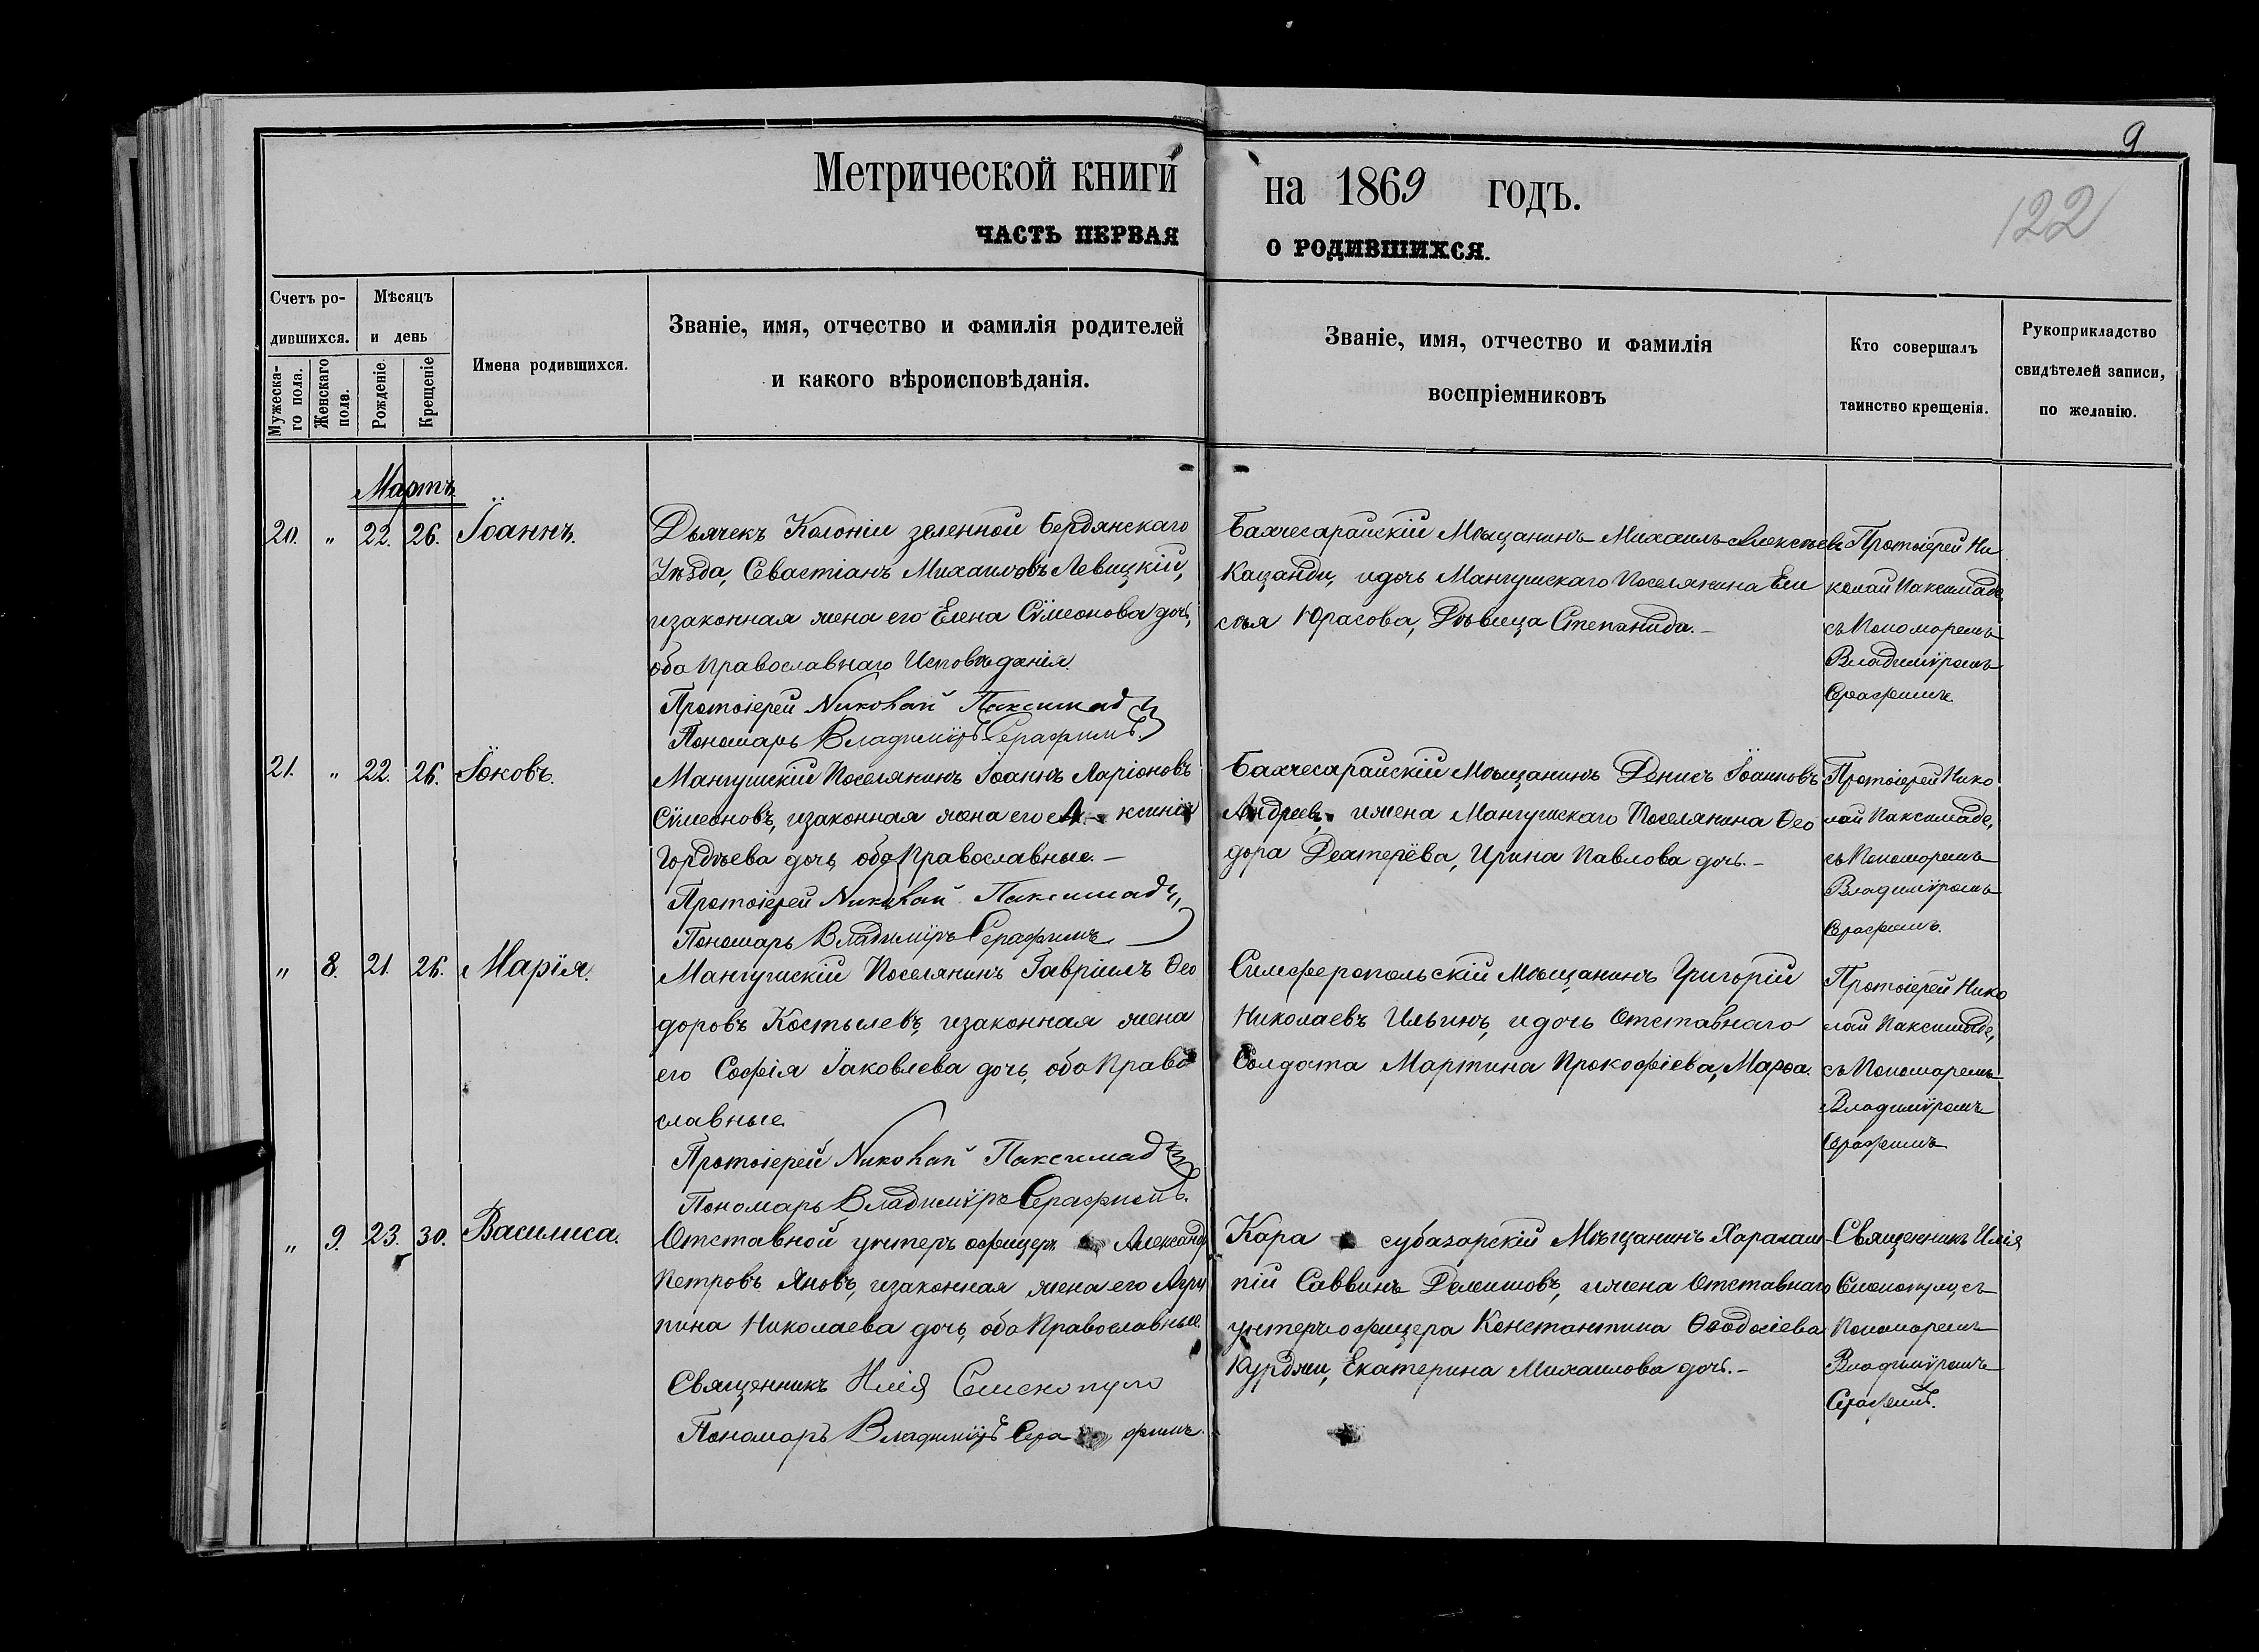 9
122
Метрической книги на 1869 годъ.
ЧАСТЬ ПЕРВАЯ О РОДИВШИХСЯ.
Счетъ ро-
дившихся.
Мужеска-
го пола.
Женскаго
пола.
Мѣсяцъ
и день
Рожденіе.
Крещеніе
Имена родившихся.
Званіе, имя, отчество и фамилія родителей
и какого вѣроисповѣданія.
Званіе, имя, отчество и фамилія
воспріемниковъ
Кто совершалъ
таинство крещенія.
Рукоприкладство
свидѣтелей записи,
по желанію.
Мартъ
20. " 22. 26. Іоаннъ.
Дьячекъ Колоніи зеленной Бердянскаго
Уѣзда, Севастіанъ Михаиловъ Левицкій,
изаконная жена его Елена Сѵмеонова дочь,
оба Православнаго Исповѣданія.
Протоіерей Николай Паксимад
Пономарь Владиміръ Серафимъ.
Бахчесарайскій Мѣщанинъ Михаилъ Алексѣевъ
Кацанди, идочь Мангушскаго Поселянина Ели
сѣя Юрасова, Дѣвица Степанида.
Протоіерей Ни
колай Паксимаде,
съ Пономоремъ
Владиміромъ
Серафимъ.
21. " 22. 26. Іаковъ.
Мангушскій Поселянинъ Іоаннъ Ларіоновъ
Сѵмеоновъ, изаконная жена его ксинія
Гордѣева дочь, оба Православные.
Протоіерей Николай Паксимад
Пономарь Владиміръ Серафимъ
Бахчесарайскій Мѣщанинъ Денисъ Іоанновъ
Андреевъ, ижена Мангушскаго Поселянина Ѳео
дора Дехтерёва, Ирина Павлова дочь.
Протоіерей Нико
лай Паксимаде,
съ Пономоремъ
Владиміромъ
Серафимъ.
" 8. 21. 26. Марія.
Мангушскій Поселянинъ Гавріилъ Ѳео
доровъ Костылевъ, изаконная жена
его Софія Іаковлева дочь, оба Право
славные.
Протоіерей Николай Паксимад
Пономарь Владиміръ Серафимъ.
Симферопольскій Мѣщанинъ Григорій
Николаевъ Ильинъ, идочь Отставнаго
Солдата Мартина Прокофіева, Марѳа.
Протоіерей Нико
лай Паксимаде,
съ Пономаремъ
Владиміромъ
Серафимъ
" 9. 23. 30. Василиса.
Отставной унтеръ офицеръ Александръ
Петровъ Яновъ, изаконная жена его Агри
пина Николаева дочь, оба Православные.
Священникъ Илія
Пономарь Владиміръ Сера фимъ.
Кара субазарскій Мѣщанинъ Харалам
пій Саввинъ ижена Отставнаго
унтеръ офицера Константина Ѳеодосіева
Курджи, Екатерина Михаилова дочь.
Священникъ Илія
съ
Пономаремъ
Владиміромъ
Серафимъ.